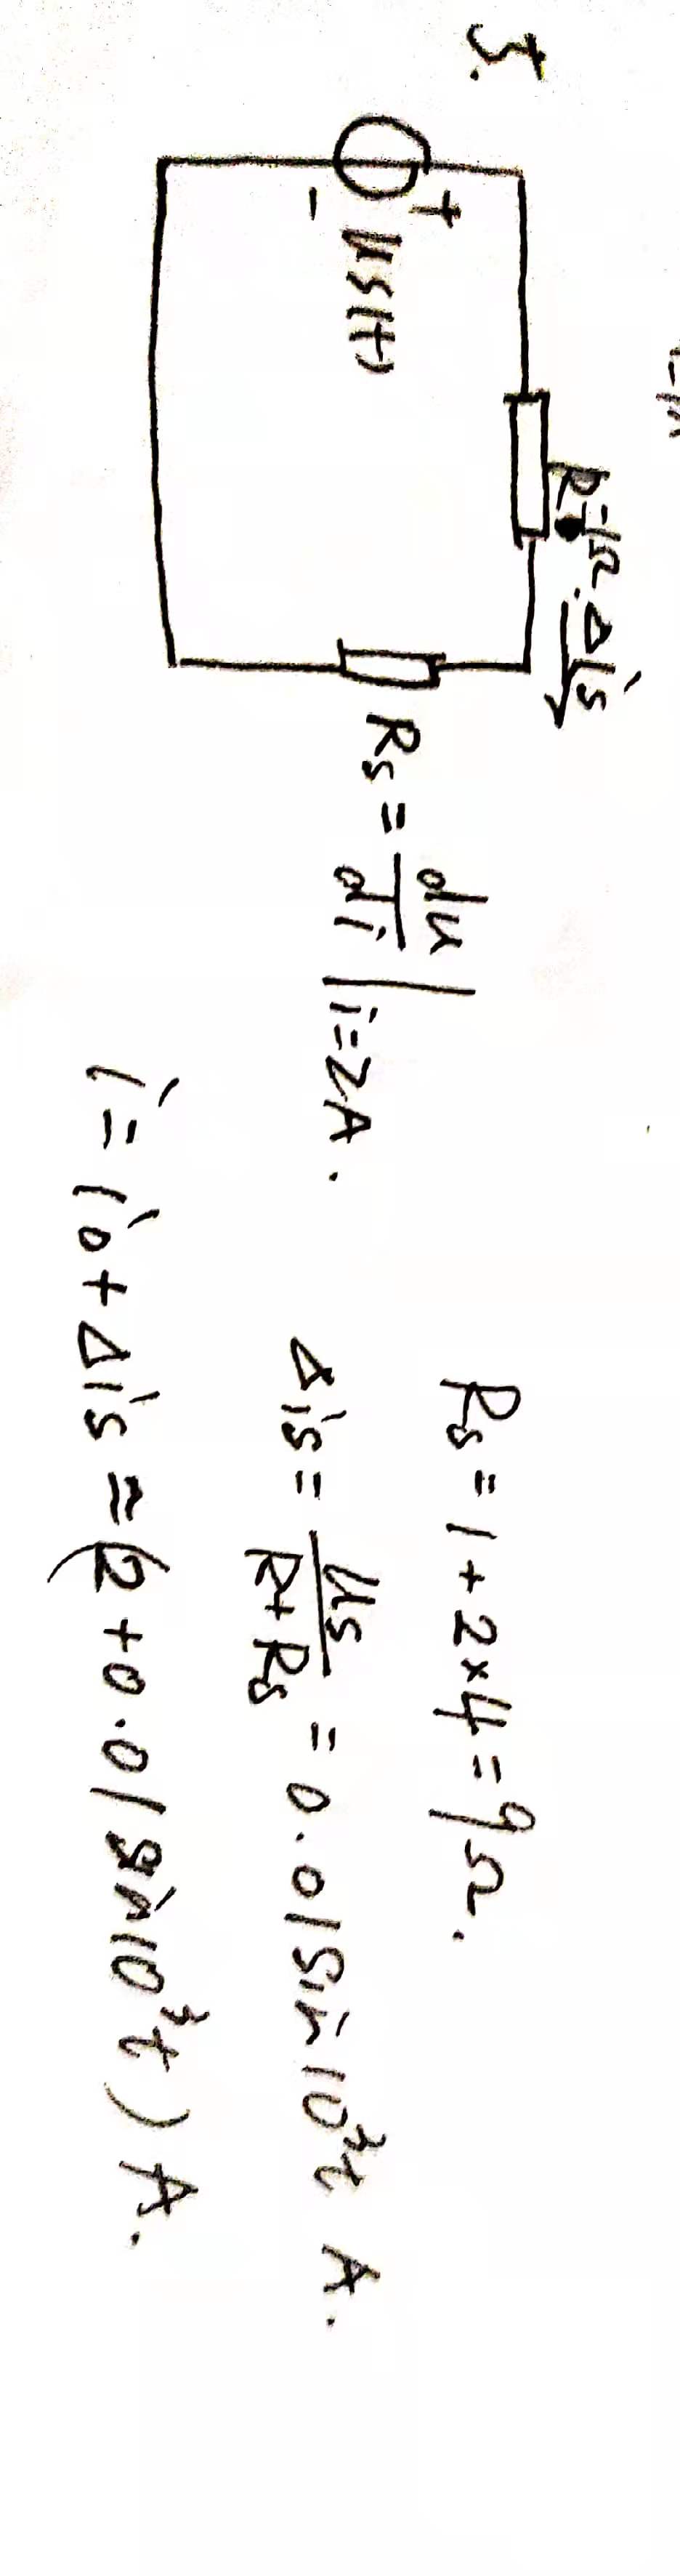 5.
R=1Ω. Δis
+
us(t)
-
Rs = du/di | i=2A.
Rs = 1+2×4 = 9Ω.
Δis = us/R+Rs = 0.01sin10³t A.
i = i0 + Δis = (2+0.01sin10³t) A.